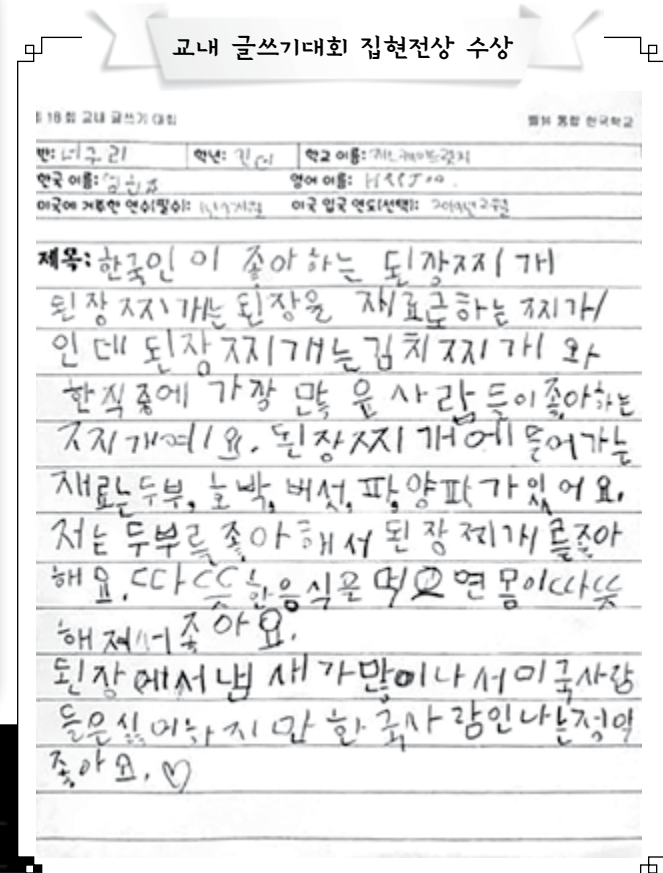 교내 글쓰기대회 집현전상 수상
18회 교내 글쓰기 대회 통합 한국학교
반: 너구리 학년: 학교 이름:
한국 이름: 영어 이름:
미국에 거주한 연수(필수): 미국 입국 연도(선택):
제목: 한국인이 좋아하는 된장찌개
된장찌개는 된장을 재료로하는 찌개
인데 된장찌개는 김치찌개 와
한식중에 가장 많은 사람들이 좋아하는
찌개에요. 된장찌개에 들어가는
재료는 두부, 호박, 버섯, 파, 양파가 있어요.
저는 두부를 좋아해서 된장찌개를 좋아
해요. 따뜻한 음식은 먹으면 몸이 따뜻
해져서 좋아요.
된장에서 냄새가 많이나서 미국사람
들은 싫어하지만 한국사람인 나는
좋아요. ♡